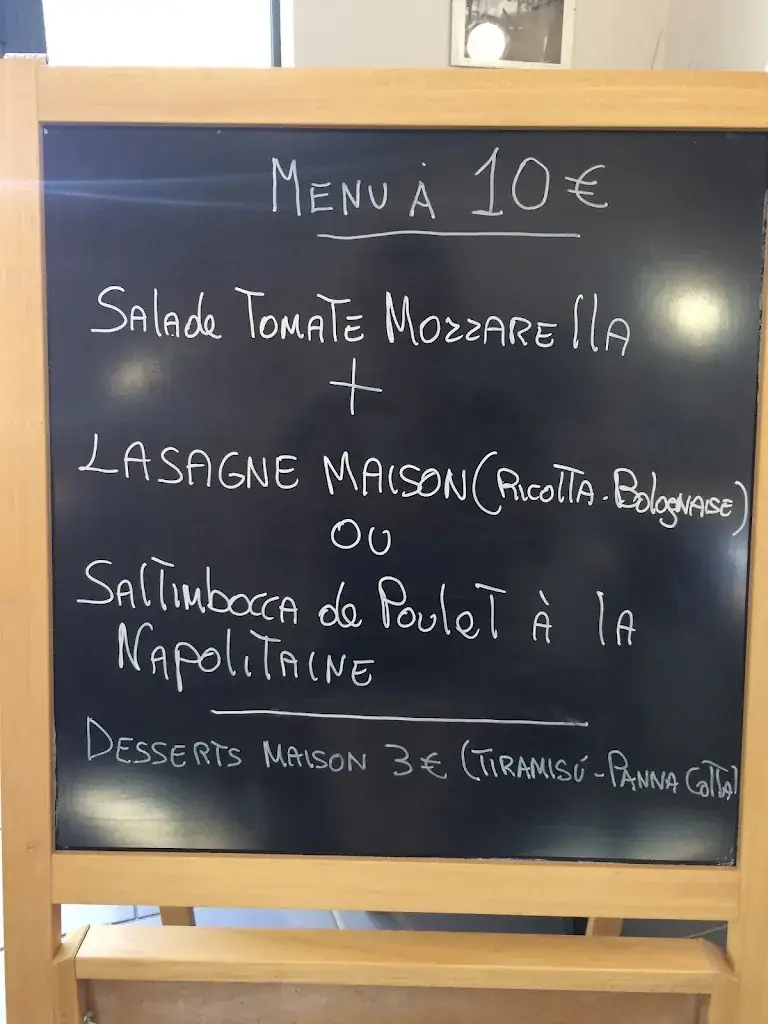 MENU À 10€
Salade TOMATE MOZZARELLA
+
LASAGNE MAISON (RICOTTA - BOLOGNAISE)
OU
SALTIMBOCCA de POULET À LA
NAPOLITAINE
DESSERTS MAISON 3€ (TIRAMISÚ - PANNA COTTA)